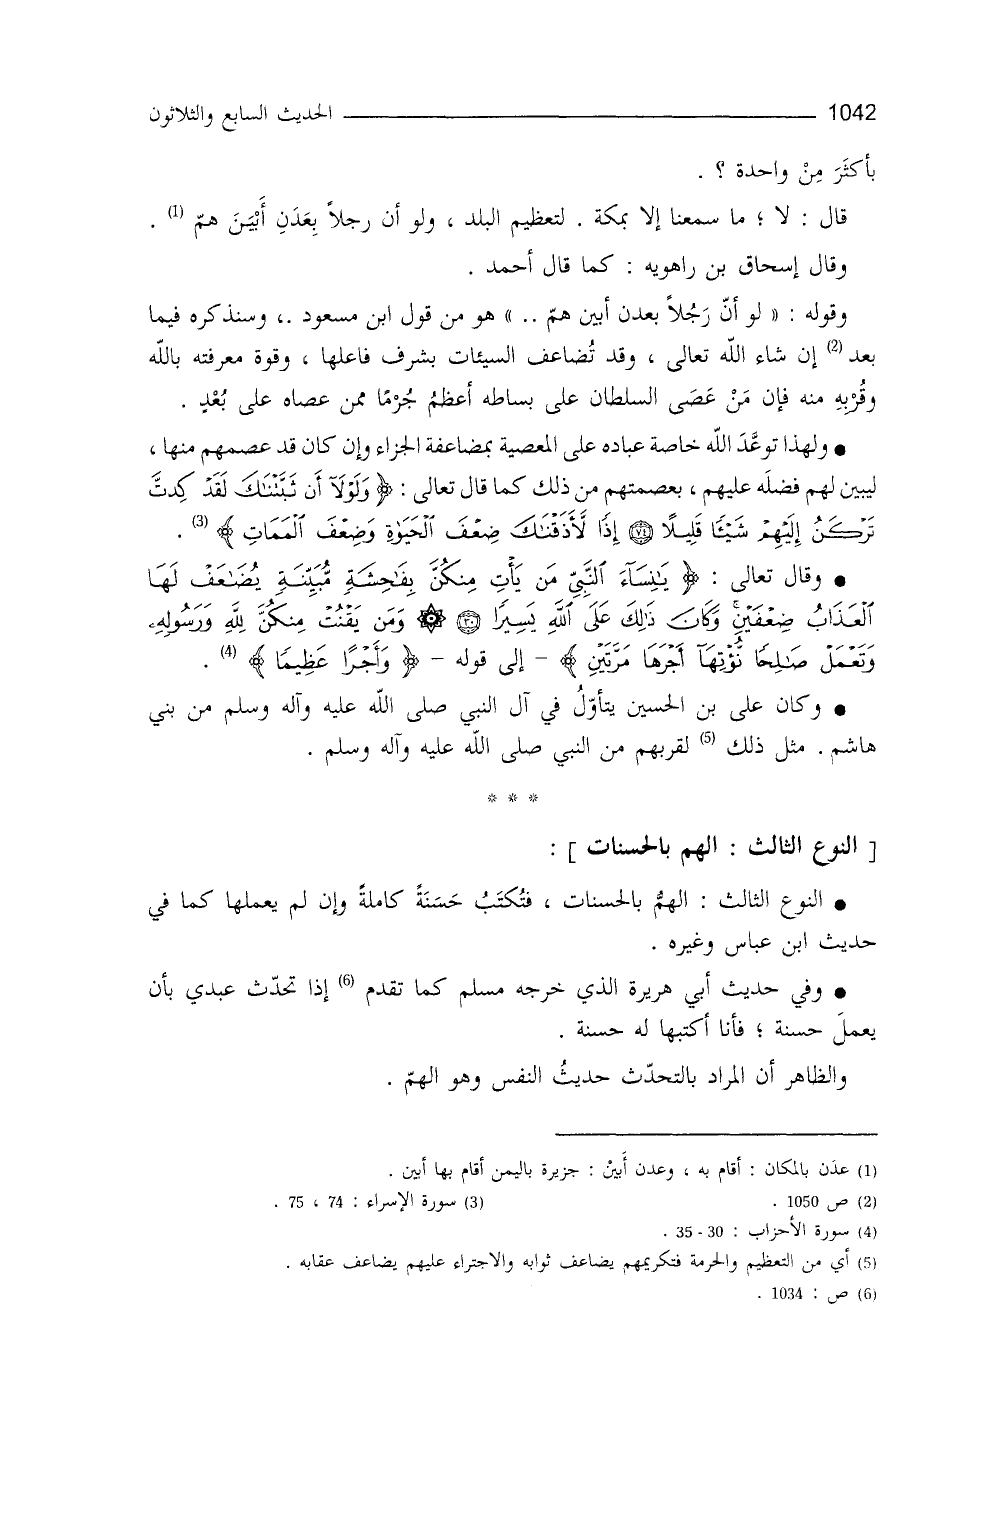 1042 الحديث السابع والثلاثون
بأكثَرَ مِنْ واحدة ؟ .
قال : لا ؛ ما سمعنا إلا بمكة . لتعظيم البلد ، ولو أن رجلاً بِعَدَنِ أَبْيَنَ همّ (1) .
وقال إسحاق بن راهويه : كما قال أحمد .
وقوله : « لو أنّ رَجُلاً بعدن أبين همّ .. » هو من قول ابن مسعود .، وسنذكره فيما
بعد (2) إن شاء اللّه تعالى ، وقد تُضاعف السيئات بشرف فاعلها ، وقوة معرفته باللّه
وقُرْبِهِ منه فإن مَنْ عَصَى السلطان على بساطه أعظمُ جُرْمًا ممن عصاه على بُعْدٍ .
● ولهذا توعَّدَ اللّه خاصة عباده على المعصية بمضاعفة الجزاء وإن كان قد عصمهم منها ،
ليبين لهم فضلَه عليهم ، بعصمتهم من ذلك كما قال تعالى : ﴿ وَلَوْلَآ أَن ثَبَّتْنَٰكَ لَقَدْ كِدتَّ
تَرْكَنُ إِلَيْهِمْ شَيْـًٔا قَلِيلًا ﴿٧٤﴾ إِذًا لَّأَذَقْنَٰكَ ضِعْفَ ٱلْحَيَوٰةِ وَضِعْفَ ٱلْمَمَاتِ ﴾ (3) .
● وقال تعالى : ﴿ يَٰنِسَآءَ ٱلنَّبِيِّ مَن يَأْتِ مِنكُنَّ بِفَٰحِشَةٍ مُّبَيِّنَةٍ يُضَٰعَفْ لَهَا
ٱلْعَذَابُ ضِعْفَيْنِ ۚ وَكَانَ ذَٰلِكَ عَلَى ٱللَّهِ يَسِيرًا ﴿٣٠﴾ ۞ وَمَن يَقْنُتْ مِنكُنَّ لِلَّهِ وَرَسُولِهِۦ
وَتَعْمَلْ صَٰلِحًا نُّؤْتِهَآ أَجْرَهَا مَرَّتَيْنِ ﴾ – إلى قوله – ﴿ وَأَجْرًا عَظِيمًا ﴾ (4) .
● وكان على بن الحسين يتأوّلُ في آل النبي صلى اللّه عليه وآله وسلم من بني
هاشم . مثل ذلك (5) لقربهم من النبي صلى اللّه عليه وآله وسلم .
* * *
[ النوع الثالث : الهم بالحسنات ] :
● النوع الثالث : الهمُّ بالحسنات ، فتُكتَبُ حَسَنَةً كاملةً وإن لم يعملها كما في
حديث ابن عباس وغيره .
● وفي حديث أبي هريرة الذي خرجه مسلم كما تقدم (6) إذا تحدّث عبدي بأن
يعملَ حسنة ؛ فأنا أكتبها له حسنة .
والظاهر أن المراد بالتحدّث حديثُ النفس وهو الهمّ .
(1) عدَن بالمكان : أقام به ، وعدن أَبيْن : جزيرة باليمن أقام بها أبين .
(2) ص 1050 . (3) سورة الإسراء : 74 ، 75 .
(4) سورة الأحزاب : 30 - 35 .
(5) أي من التعظيم والحرمة فتكريمهم يضاعف ثوابه والاجتراء عليهم يضاعف عقابه .
(6) ص : 1034 .